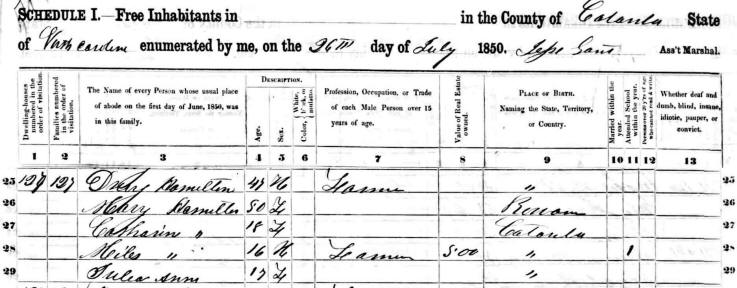 SCHEDULE I.—Free Inhabitants in in the County of Catawba State
of North Carolina enumerated by me, on the 26th day of July 1850. Ass't Marshal.
Dwelling-houses numbered in the order of visitation.
Families numbered in the order of visitation.
The Name of every Person whose usual place of abode on the first day of June, 1850, was in this family.
DESCRIPTION.
Age.
Sex.
Color, White, black, or mulatto.
Profession, Occupation, or Trade of each Male Person over 15 years of age.
Value of Real Estate owned.
PLACE OF BIRTH. Naming the State, Territory, or Country.
Married within the year.
Attended School within the year.
Whether deaf and dumb, blind, insane, idiotic, pauper, or convict.
1 2 3 4 5 6 7 8 9 10 11 12 13
25 127 127 Drury Hamilton 47 M Farmer " 25
26 Mary Hamilton 50 F Rowan 26
27 Catharin " 18 F Catawba 27
28 Miles " 16 M Farmer 500 " 1 28
29 Julia Anne 17 F " 29